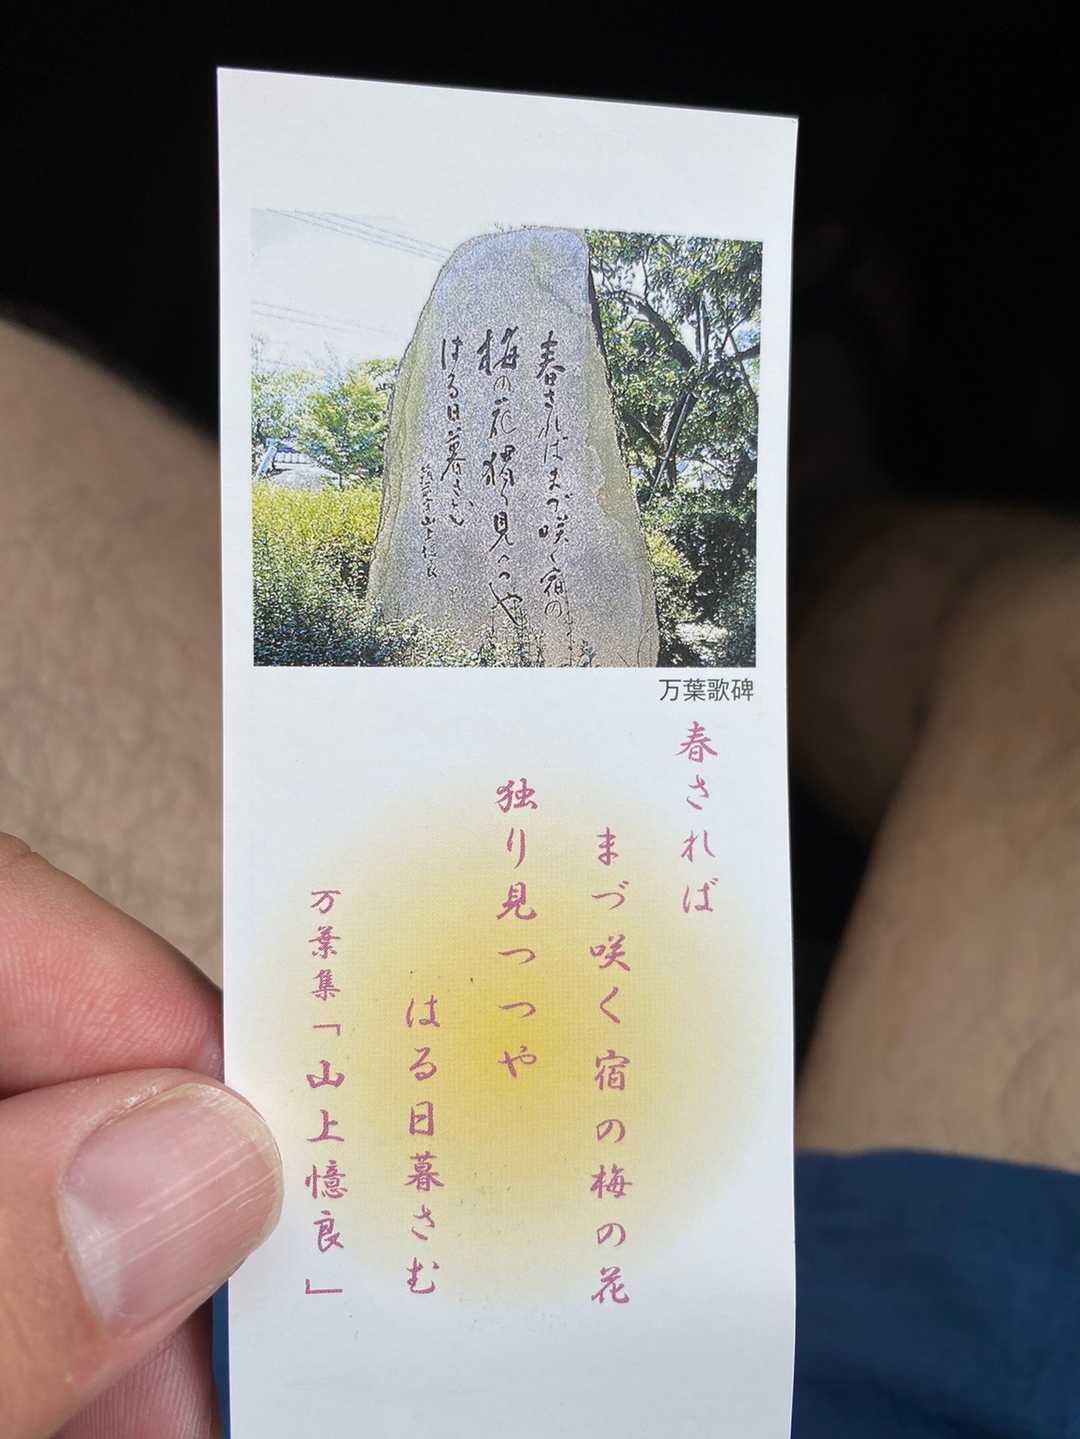 春さればまづ咲く宿の
梅の花獨り見つつや
はる日暮さむ
万葉歌碑
春されば
まづ咲く宿の梅の花
独り見つつや
はる日暮さむ
万葉集「山上憶良」